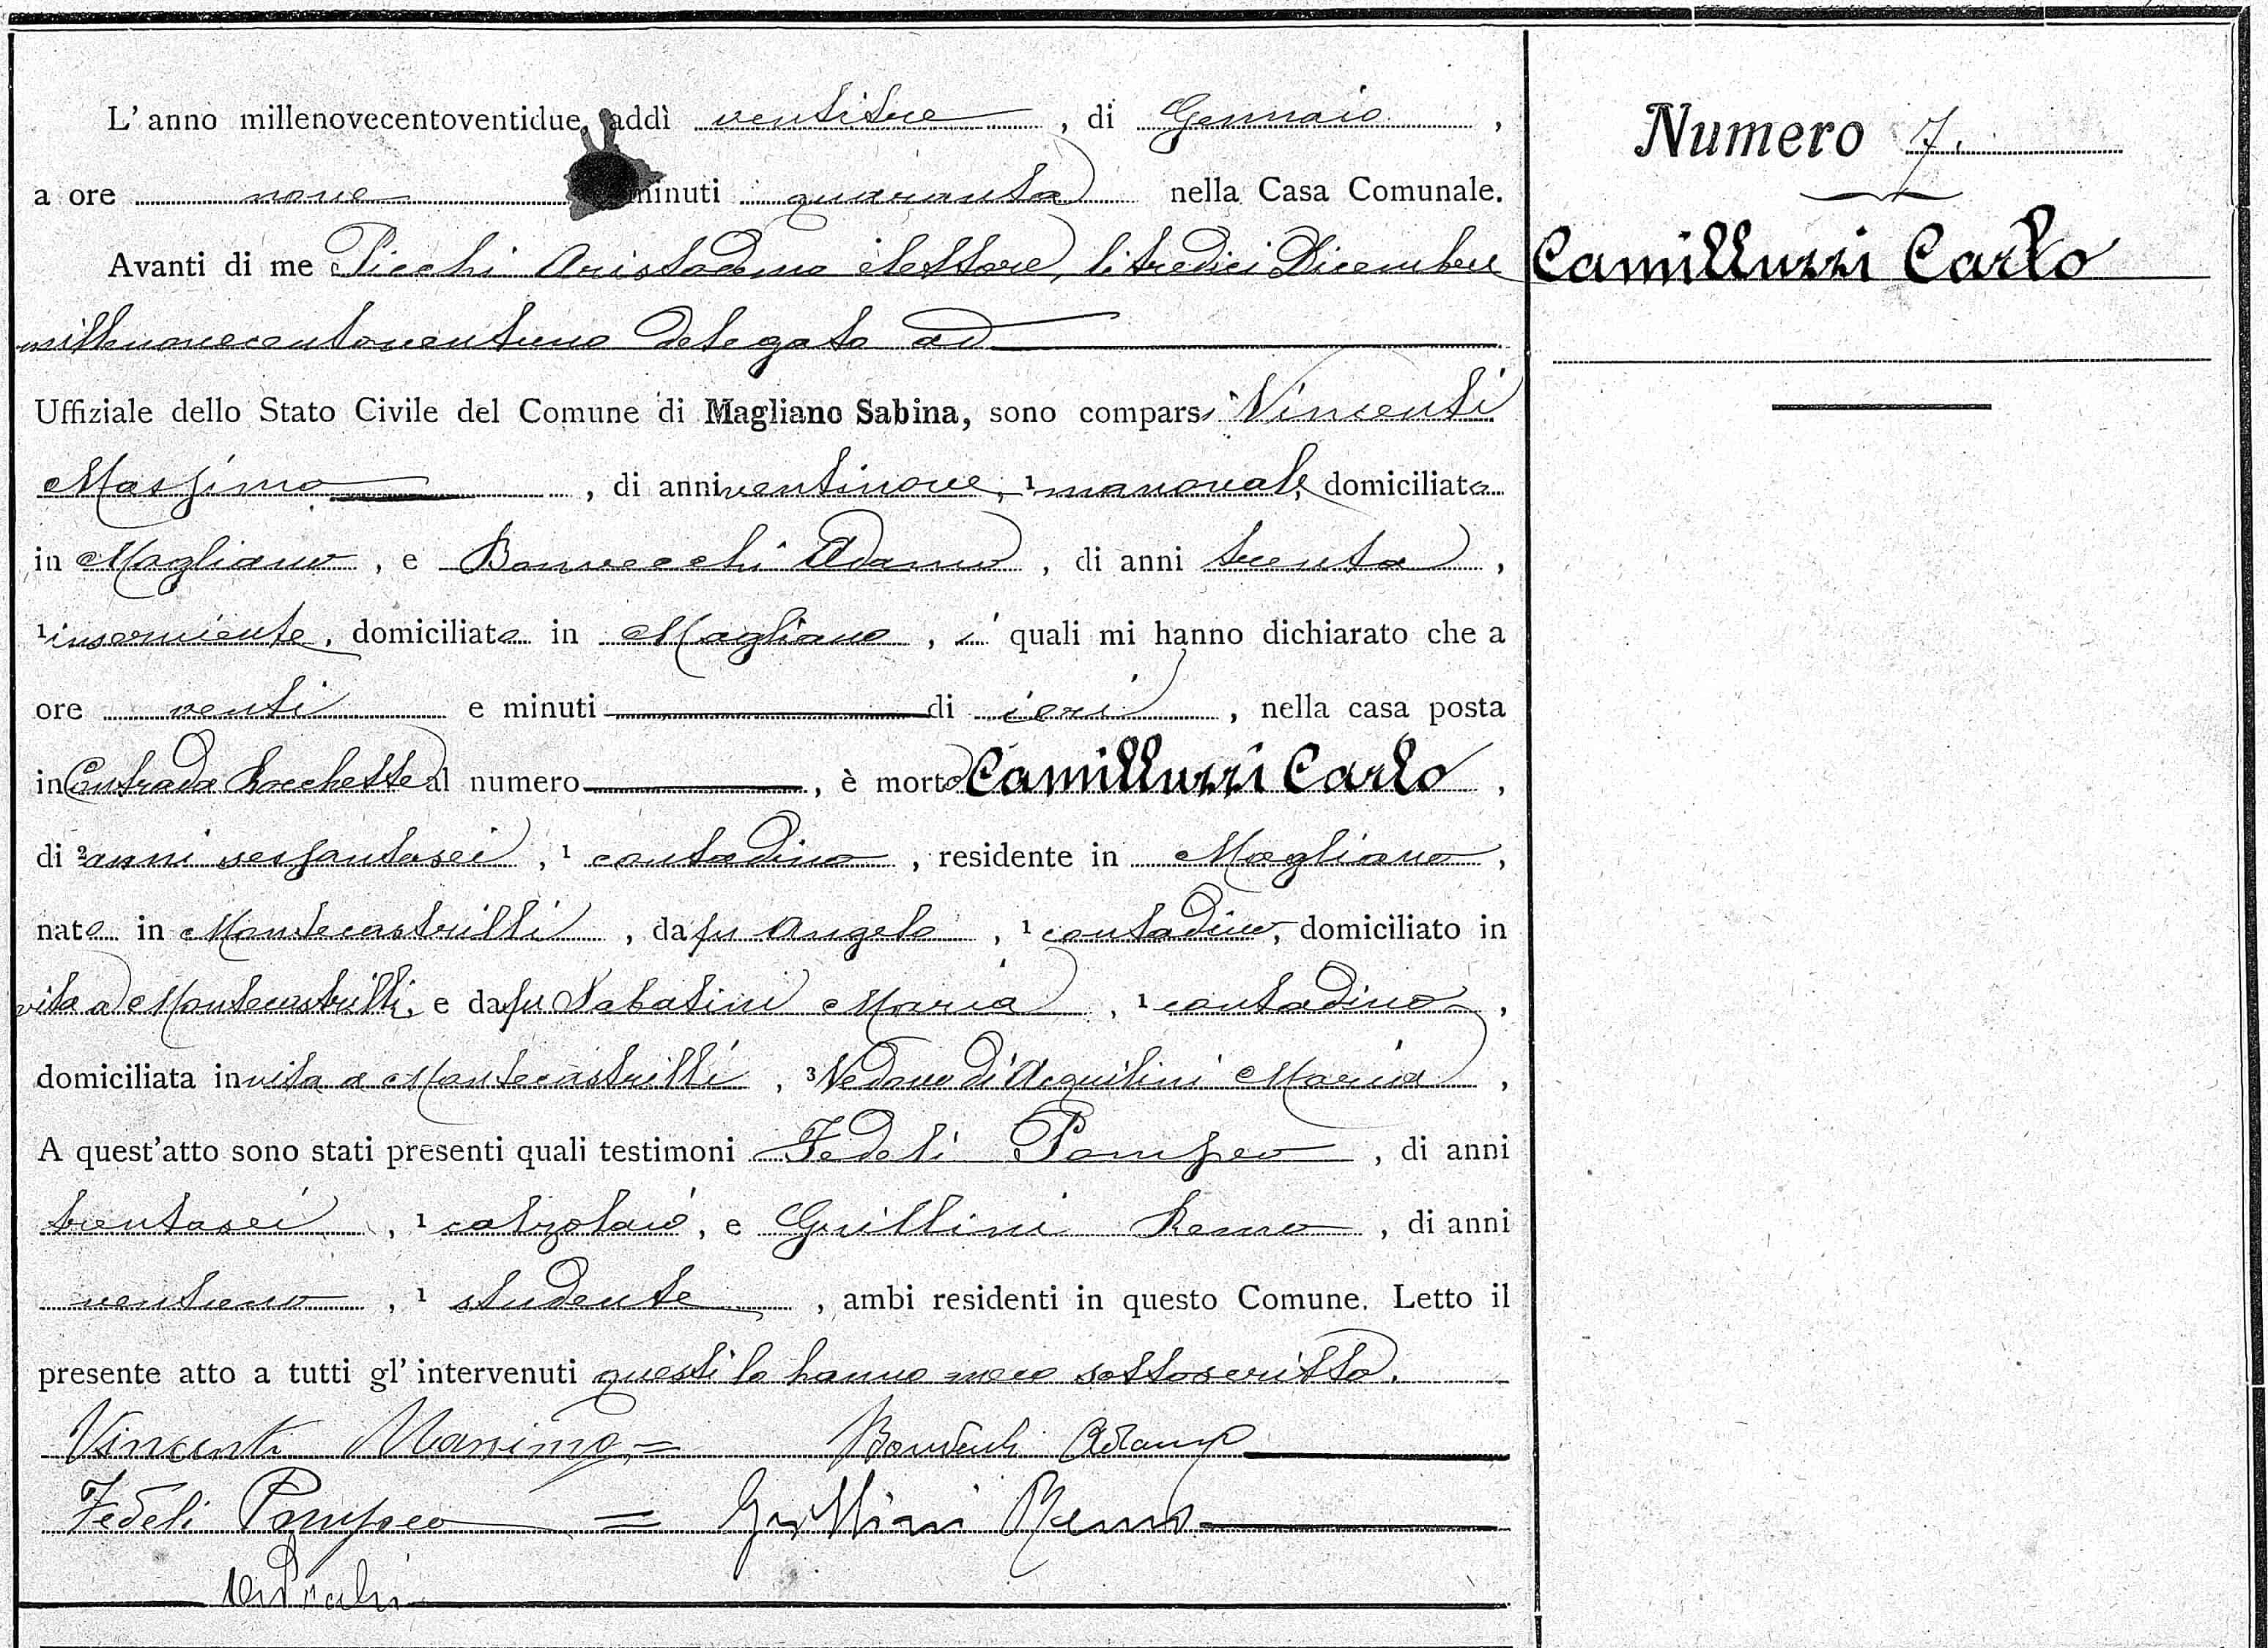 L' anno millenovecentoventidue, addì ventitre, di Gennaio,
a ore nove e minuti quaranta nella Casa Comunale.
Avanti di me Picchi Aristodemo elettore, li tredici Dicembre
millenovecentoventuno delegato ad
Uffiziale dello Stato Civile del Comune di Magliano Sabina, sono comparsi Vincenti
Massimo, di anni ventinove, ¹ manovale, domiciliato
in Magliano, e Bonvecchi Adamo, di anni trenta,
¹ inserviente, domiciliato in Magliano, i quali mi hanno dichiarato che a
ore venti e minuti di ieri, nella casa posta
in Contrada Rocchette al numero, è morto Camilluzzi Carlo,
di ² anni sessantasei, ¹ contadino, residente in Magliano,
nato in Montecastrilli, da fu Angelo, ¹ contadino, domiciliato in
vita a Montecastrilli, e da fu Sabatini Maria, ¹ contadina,
domiciliata in vita a Montecastrilli, ³ Vedovo di Acquilini Maria,
A quest'atto sono stati presenti quali testimoni Fedeli Pompeo, di anni
trentasei, ¹ calzolaio, e Grillini Remo, di anni
ventuno, ¹ studente, ambi residenti in questo Comune. Letto il
presente atto a tutti gl' intervenuti questi lo hanno meco sottoscritto.
Vincenti Massimo = Bonvecchi Adamo
Fedeli Pompeo = Grillini Remo
Picchi
Numero 7.
Camilluzzi Carlo